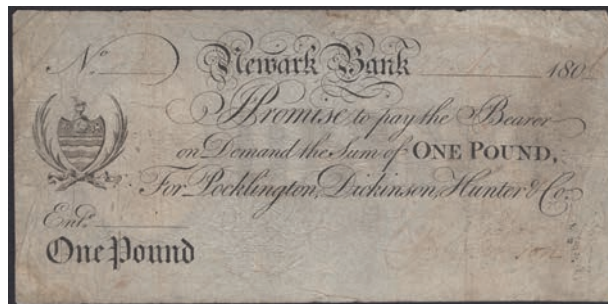 No Newark Bank 180
I Promise to pay the Bearer
on Demand the Sum of ONE POUND,
For Pocklington, Dickinson, Hunter & Co.
Entd.
One Pound